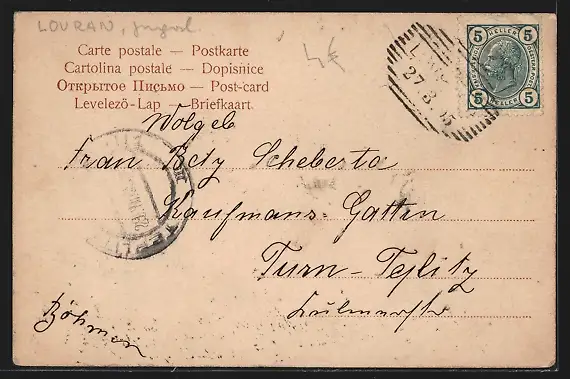 LOVRAN, Jugosl
4€
Carte postale — Postkarte
Cartolina postale — Dopisnice
Открытое Письмо — Post-card
Levelező-Lap — Briefkaart.
5 HELLER 5
5 HELLER 5
27.3.05
Wolgeb
Frau Betz Scheberta
Kaufmans-Gattin
Turn-Teplitz
Böhmen